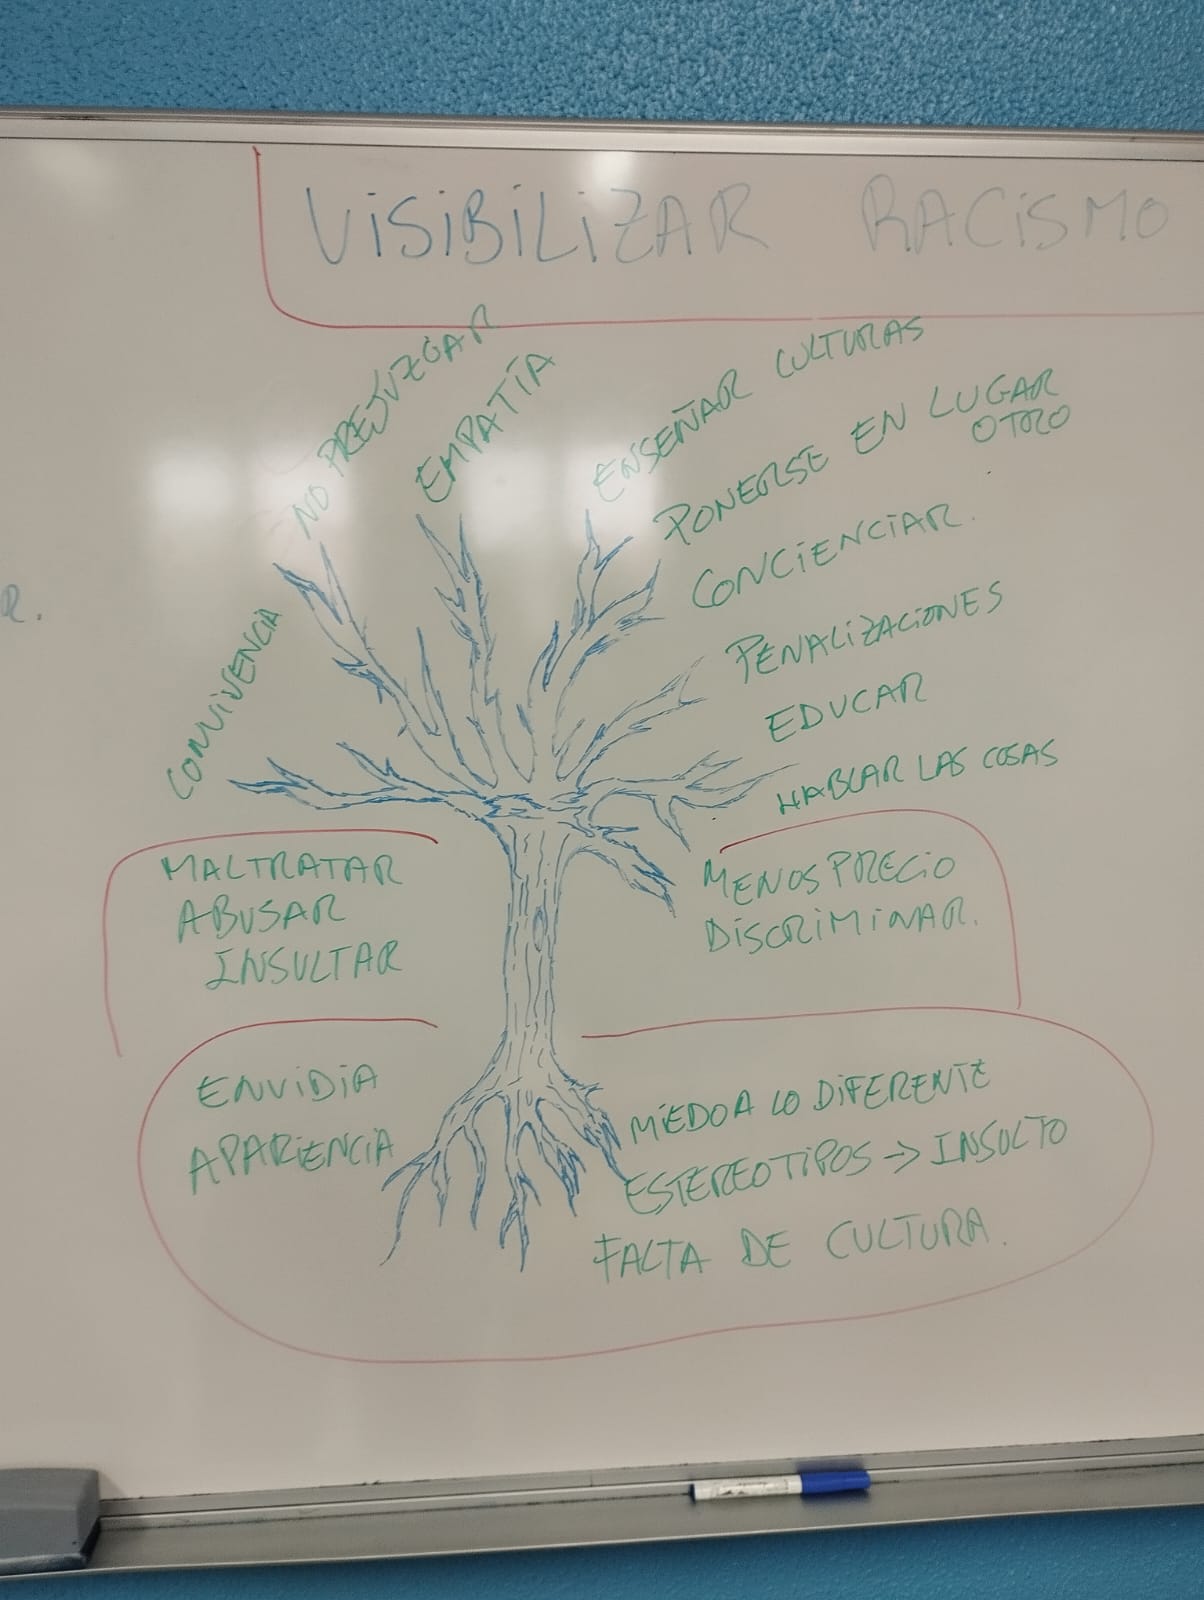 VISIBILIZAR RACISMO
NO PREJUZGAR
EMPATÍA
ENSEÑAR CULTURAS
PONERSE EN LUGAR
OTRO
CONCIENCIAR.
PENALIZACIONES
EDUCAR
HABLAR LAS COSAS
CONVIVENCIA
MALTRATAR
ABUSAR
INSULTAR
MENOSPRECIO
DISCRIMINAR.
ENVIDIA
APARIENCIA
MIEDO A LO DIFERENTE
ESTEREOTIPOS -> INSULTO
FALTA DE CULTURA.